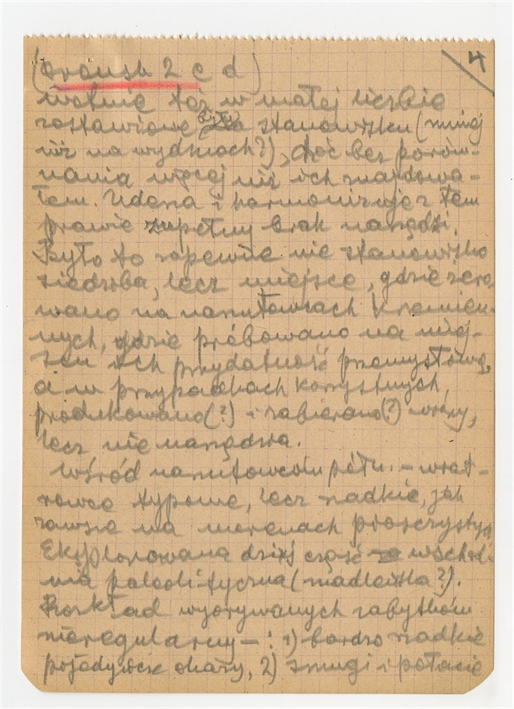 (Arkusz 2 c d) 4
walnię też w małej liczbie
zostawione były na stanowisku (mniej
niż na wydmach?), choć bez porów-
nania więcej niż ich znajdowa-
łem. Uderza i harmonizuje z tem
prawie zupełny brak narzędzi.
Było to zapewne nie stanowisko
siedziba, lecz miejsce, gdzie żero
wano na narzutowcach krzemien-
nych, gdzie próbowano na miej-
scu ich przydatność przemysłową,
a w przypadkach korzystnych
produkowano(?) i zabierano(?) wióry,
lecz nie narzędzia.
Wśród narzutowców półn. –
typowe, lecz rzadkie, jak
zawsze na morenach
Eksplorowana dziś część wschod
nia paleolityczna (madleńska?).
Rozkład wyorywanych zabytków
nieregularny – : 1) bardzo rzadkie
pojedyńcze okazy, 2) smugi i połacie